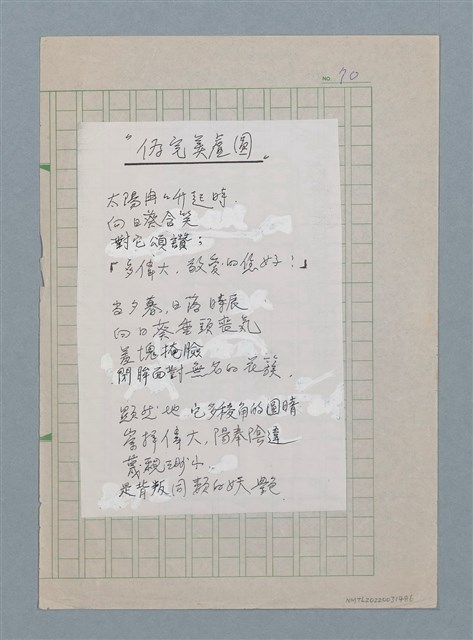 NO. 70
"仿完美虛圓"
太陽冉々升起時.
向日葵含笑
對它頌讚：
「多偉大.敬愛的您好！」
當夕暮,日落時辰
向日葵垂頭喪氣
羞塊掩臉
閉眸面對無名的花簇.
顯然地 它多稜角的圓睛
崇拜偉大,陽奉陰違
蔑視渺小.
是背叛同類的妖艷